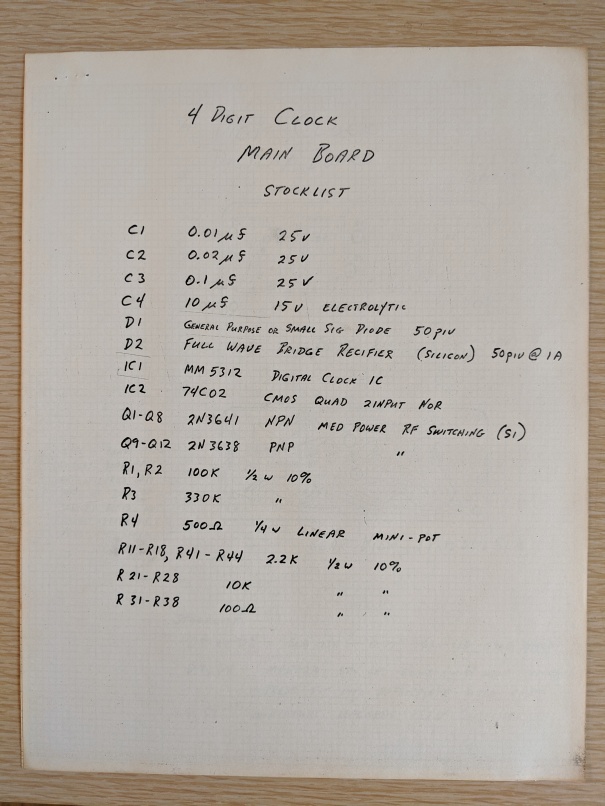 4 DIGIT CLOCK
MAIN BOARD
STOCKLIST
C1 0.01 µf 25V
C2 0.02 µf 25V
C3 0.1 µf 25V
C4 10 µf 15V ELECTROLYTIC
D1 GENERAL PURPOSE OR SMALL SIG DIODE 50PIV
D2 FULL WAVE BRIDGE RECIFIER (SILICON) 50PIV @ 1A
IC1 MM5312 DIGITAL CLOCK IC
IC2 74C02 CMOS QUAD 2INPUT NOR
Q1-Q8 2N3641 NPN MED POWER RF SWITCHING (SI)
Q9-Q12 2N3638 PNP "
R1, R2 100K 1/2 W 10%
R3 330K "
R4 500Ω 1/4 W LINEAR MINI-POT
R11-R18, R41-R44 2.2K 1/2 W 10%
R21-R28 10K " "
R31-R38 100Ω " "